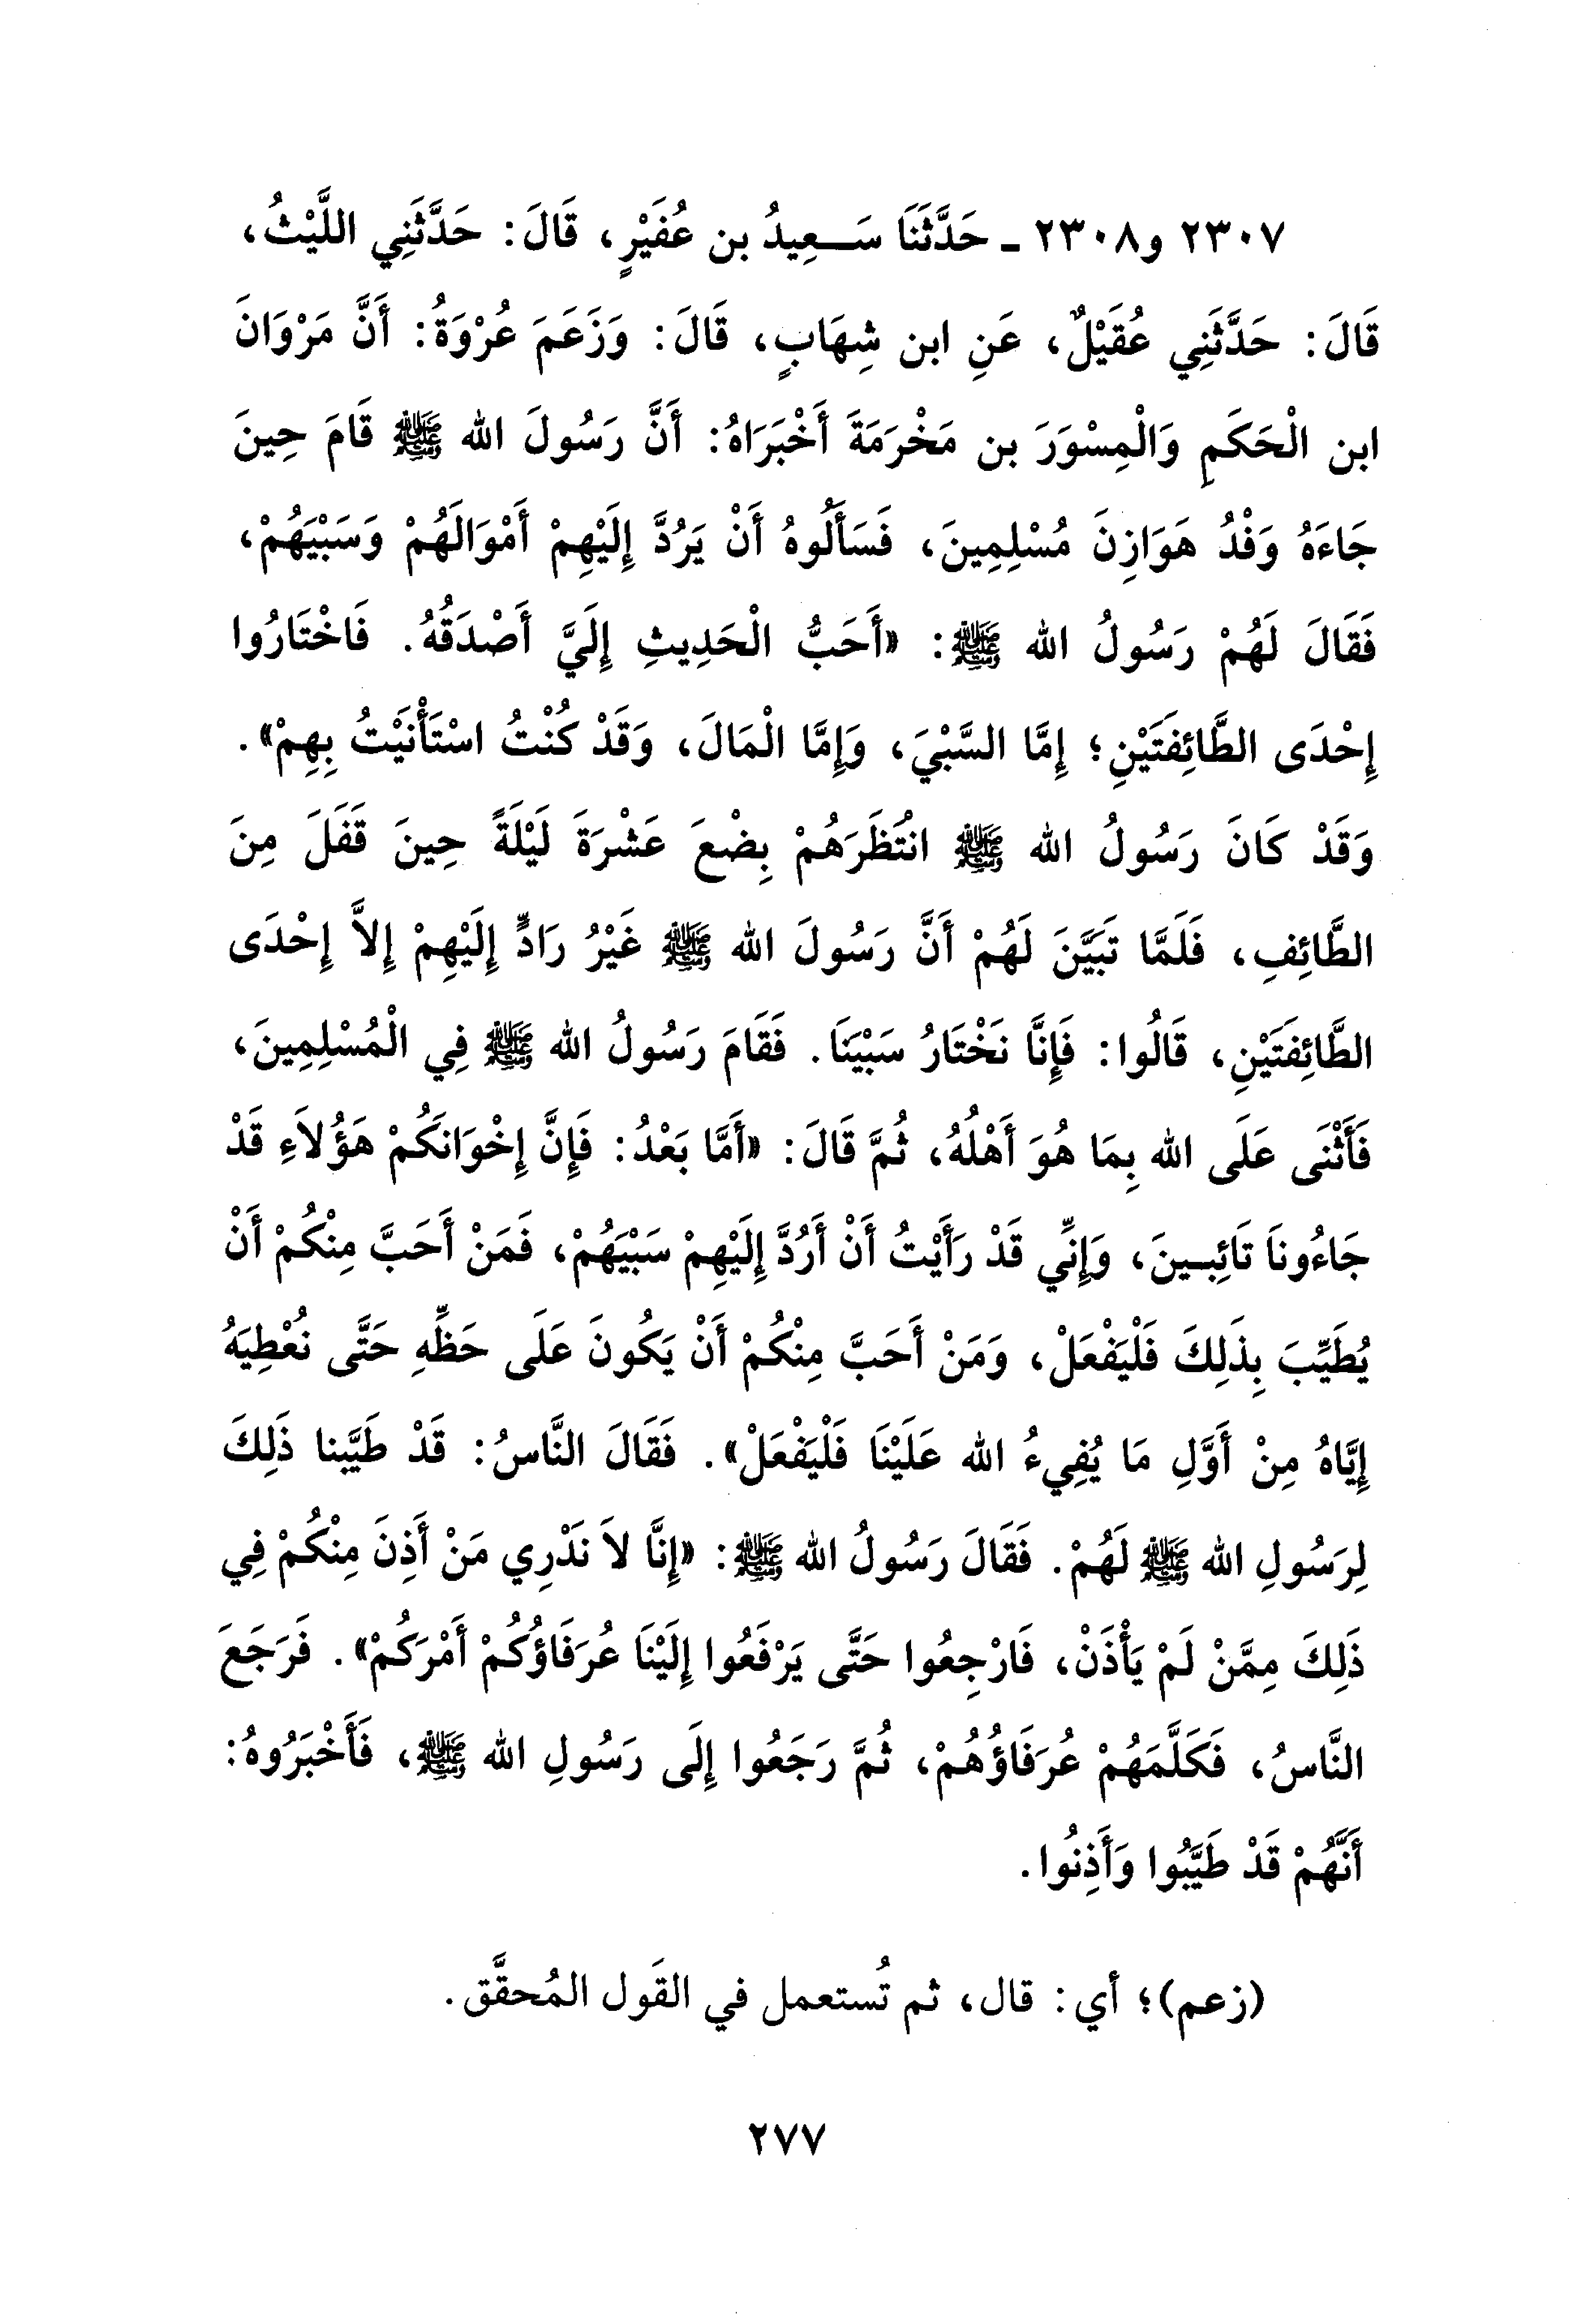 ٢٣٠٧ و٢٣٠٨ ـ حَدَّثَنَا سَـعِيدُ بن عُفَيْرٍ، قَالَ: حَدَّثَنِي اللَّيْثُ،
قَالَ: حَدَّثَنِي عُقَيْلٌ، عَنِ ابن شِهَابٍ، قَالَ: وَزَعَمَ عُرْوَةُ: أَنَّ مَرْوَانَ
ابن الْحَكَمِ وَالْمِسْوَرَ بن مَخْرَمَةَ أَخْبَرَاهُ: أَنَّ رَسُولَ الله ﷺ قَامَ حِينَ
جَاءَهُ وَفْدُ هَوَازِنَ مُسْلِمِينَ، فَسَأَلُوهُ أَنْ يَرُدَّ إِلَيْهِمْ أَمْوَالَهُمْ وَسَبْيَهُمْ،
فَقَالَ لَهُمْ رَسُولُ الله ﷺ: «أَحَبُّ الْحَدِيثِ إِلَيَّ أَصْدَقُهُ. فَاخْتَارُوا
إِحْدَى الطَّائِفَتَيْنِ؛ إِمَّا السَّبْيَ، وَإِمَّا الْمَالَ، وَقَدْ كُنْتُ اسْتَأْنَيْتُ بِهِمْ».
وَقَدْ كَانَ رَسُولُ الله ﷺ انْتَظَرَهُمْ بِضْعَ عَشْرَةَ لَيْلَةً حِينَ قَفَلَ مِنَ
الطَّائِفِ، فَلَمَّا تَبَيَّنَ لَهُمْ أَنَّ رَسُولَ الله ﷺ غَيْرُ رَادٍّ إِلَيْهِمْ إِلاَّ إِحْدَى
الطَّائِفَتَيْنِ، قَالُوا: فَإِنَّا نَخْتَارُ سَبْيَنَا. فَقَامَ رَسُولُ الله ﷺ فِي الْمُسْلِمِينَ،
فَأَثْنَى عَلَى الله بِمَا هُوَ أَهْلُهُ، ثُمَّ قَالَ: «أَمَّا بَعْدُ: فَإِنَّ إِخْوَانَكُمْ هَؤُلاَءِ قَدْ
جَاءُونَا تَائِبـينَ، وَإِنِّي قَدْ رَأَيْتُ أَنْ أَرُدَّ إِلَيْهِمْ سَبْيَهُمْ، فَمَنْ أَحَبَّ مِنْكُمْ أَنْ
يُطَيِّبَ بِذَلِكَ فَلْيَفْعَلْ، وَمَنْ أَحَبَّ مِنْكُمْ أَنْ يَكُونَ عَلَى حَظِّهِ حَتَّى نُعْطِيَهُ
إِيَّاهُ مِنْ أَوَّلِ مَا يُفِيءُ الله عَلَيْنَا فَلْيَفْعَلْ». فَقَالَ النَّاسُ: قَدْ طَيَّبنا ذَلِكَ
لِرَسُولِ الله ﷺ لَهُمْ. فَقَالَ رَسُولُ الله ﷺ: «إِنَّا لاَ نَدْرِي مَنْ أَذِنَ مِنْكُمْ فِي
ذَلِكَ مِمَّنْ لَمْ يَأْذَنْ، فَارْجِعُوا حَتَّى يَرْفَعُوا إِلَيْنَا عُرَفَاؤُكُمْ أَمْرَكُمْ». فَرَجَعَ
النَّاسُ، فَكَلَّمَهُمْ عُرَفَاؤُهُمْ، ثُمَّ رَجَعُوا إِلَى رَسُولِ الله ﷺ، فَأَخْبَرُوهُ:
أَنَّهُمْ قَدْ طَيَّبُوا وَأَذِنُوا.
(زعم)؛ أي: قال، ثم تُستعمل في القَول المُحقَّق.
٢٧٧